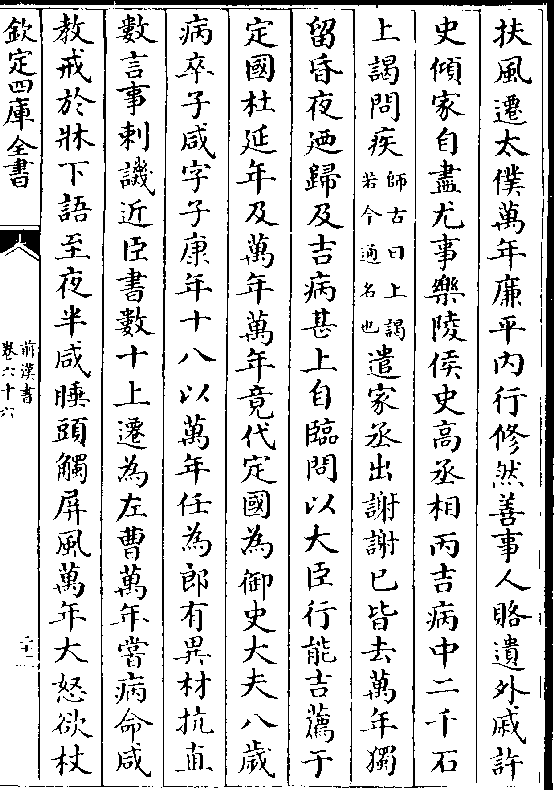 扶風遷太僕萬年廉平内行修然善事人賂遺外戚許
史傾家自盡尤事樂陵侯史高丞相丙吉病中二千石
上謁問疾師古曰上謁若今通名也遣家丞出謝謝已皆去萬年獨
留昏夜廼歸及吉病甚上自臨問以大臣行能吉薦于
定國杜延年及萬年萬年竟代定國為御史大夫八歲
病卒子咸字子康年十八以萬年任為郎有異材抗直
數言事刺譏近臣書數十上遷為左曹萬年嘗病命咸
教戒於牀下語至夜半咸睡頭觸屏風萬年大怒欲杖
欽定四庫全書
前漢書
卷六十六